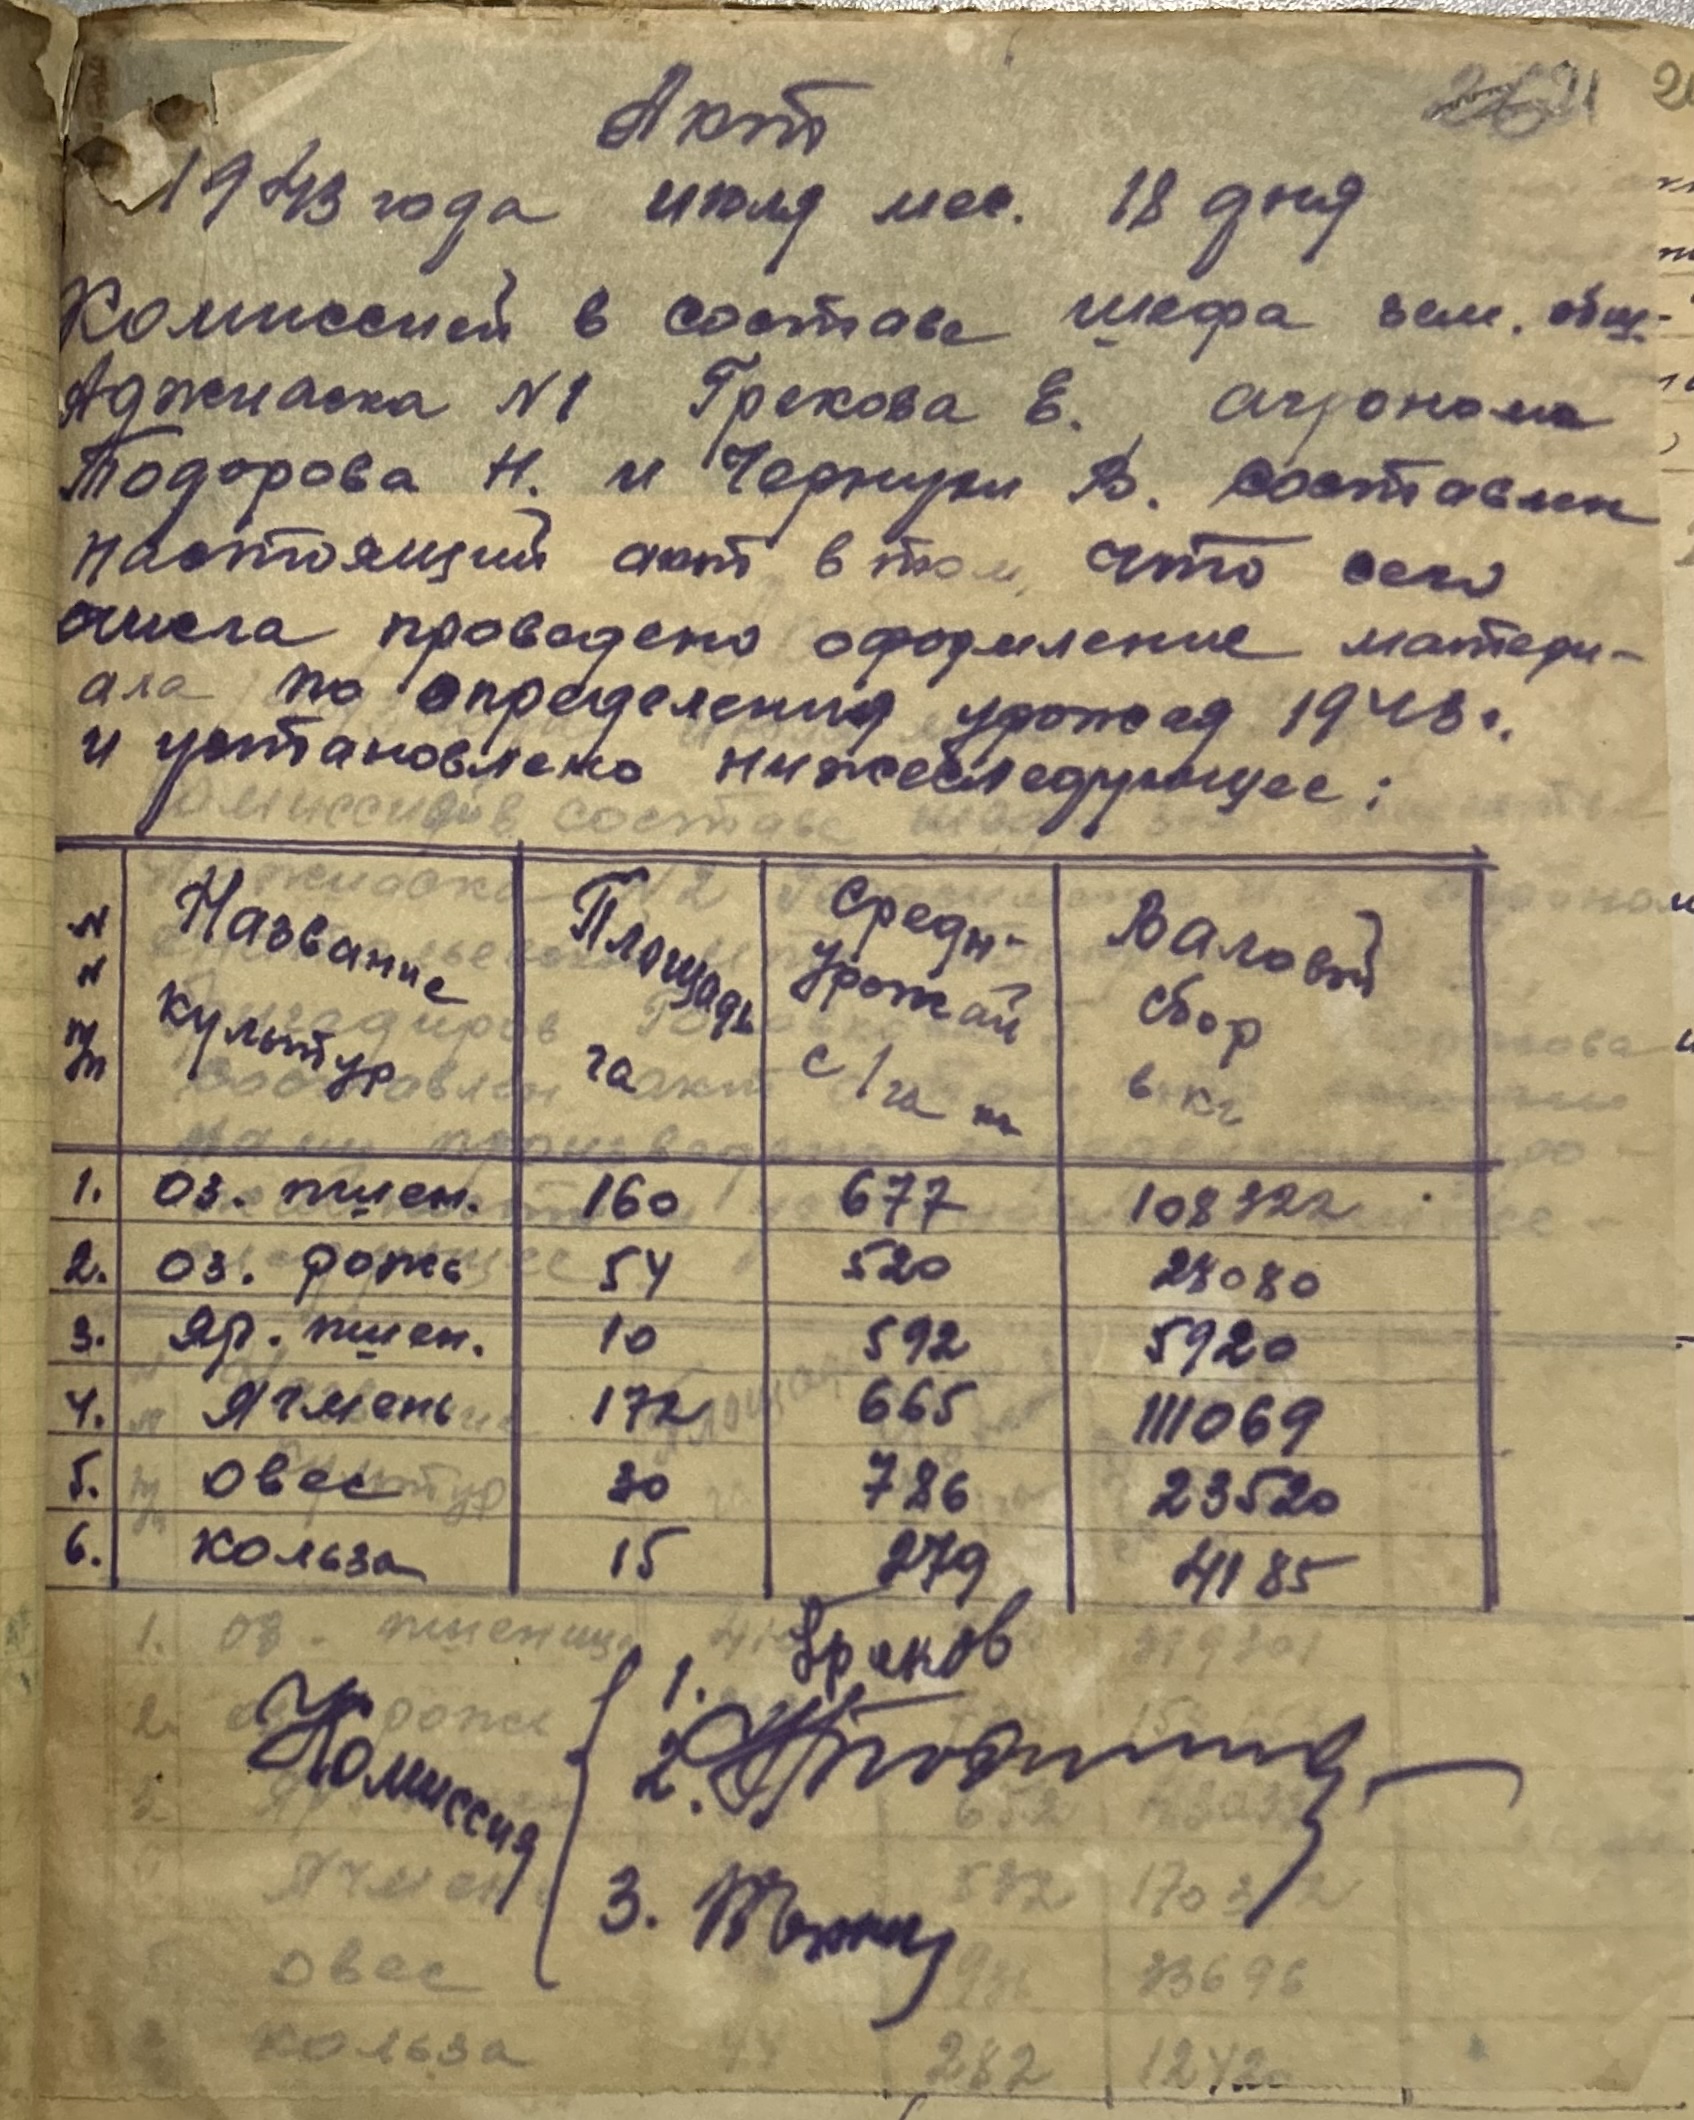 21
Акт
1943 года июля мес. 18 дня
Комиссией в составе шефа зем. общ.
Аджиаска N1 Грекова Е. агронома
Тодорова Н. и Чернухи В. составлен
настоящий акт в том, что сего
числа проведено оформление матери-
ала по определения урожая 1943 г.
и установлено нижеследующее:
N N п/п Название культур Площадь га Средн. урожай с/га кг Валовый сбор в кг
1. оз. пшен. 160 677 108322
2. оз. рожь 54 520 28080
3. яр. пшен. 10 592 5920
4. Ячмень 172 665 111069
5. овес 30 786 23520
6. кольза 15 279 4185
Комиссия
1. Греков
2.
3.